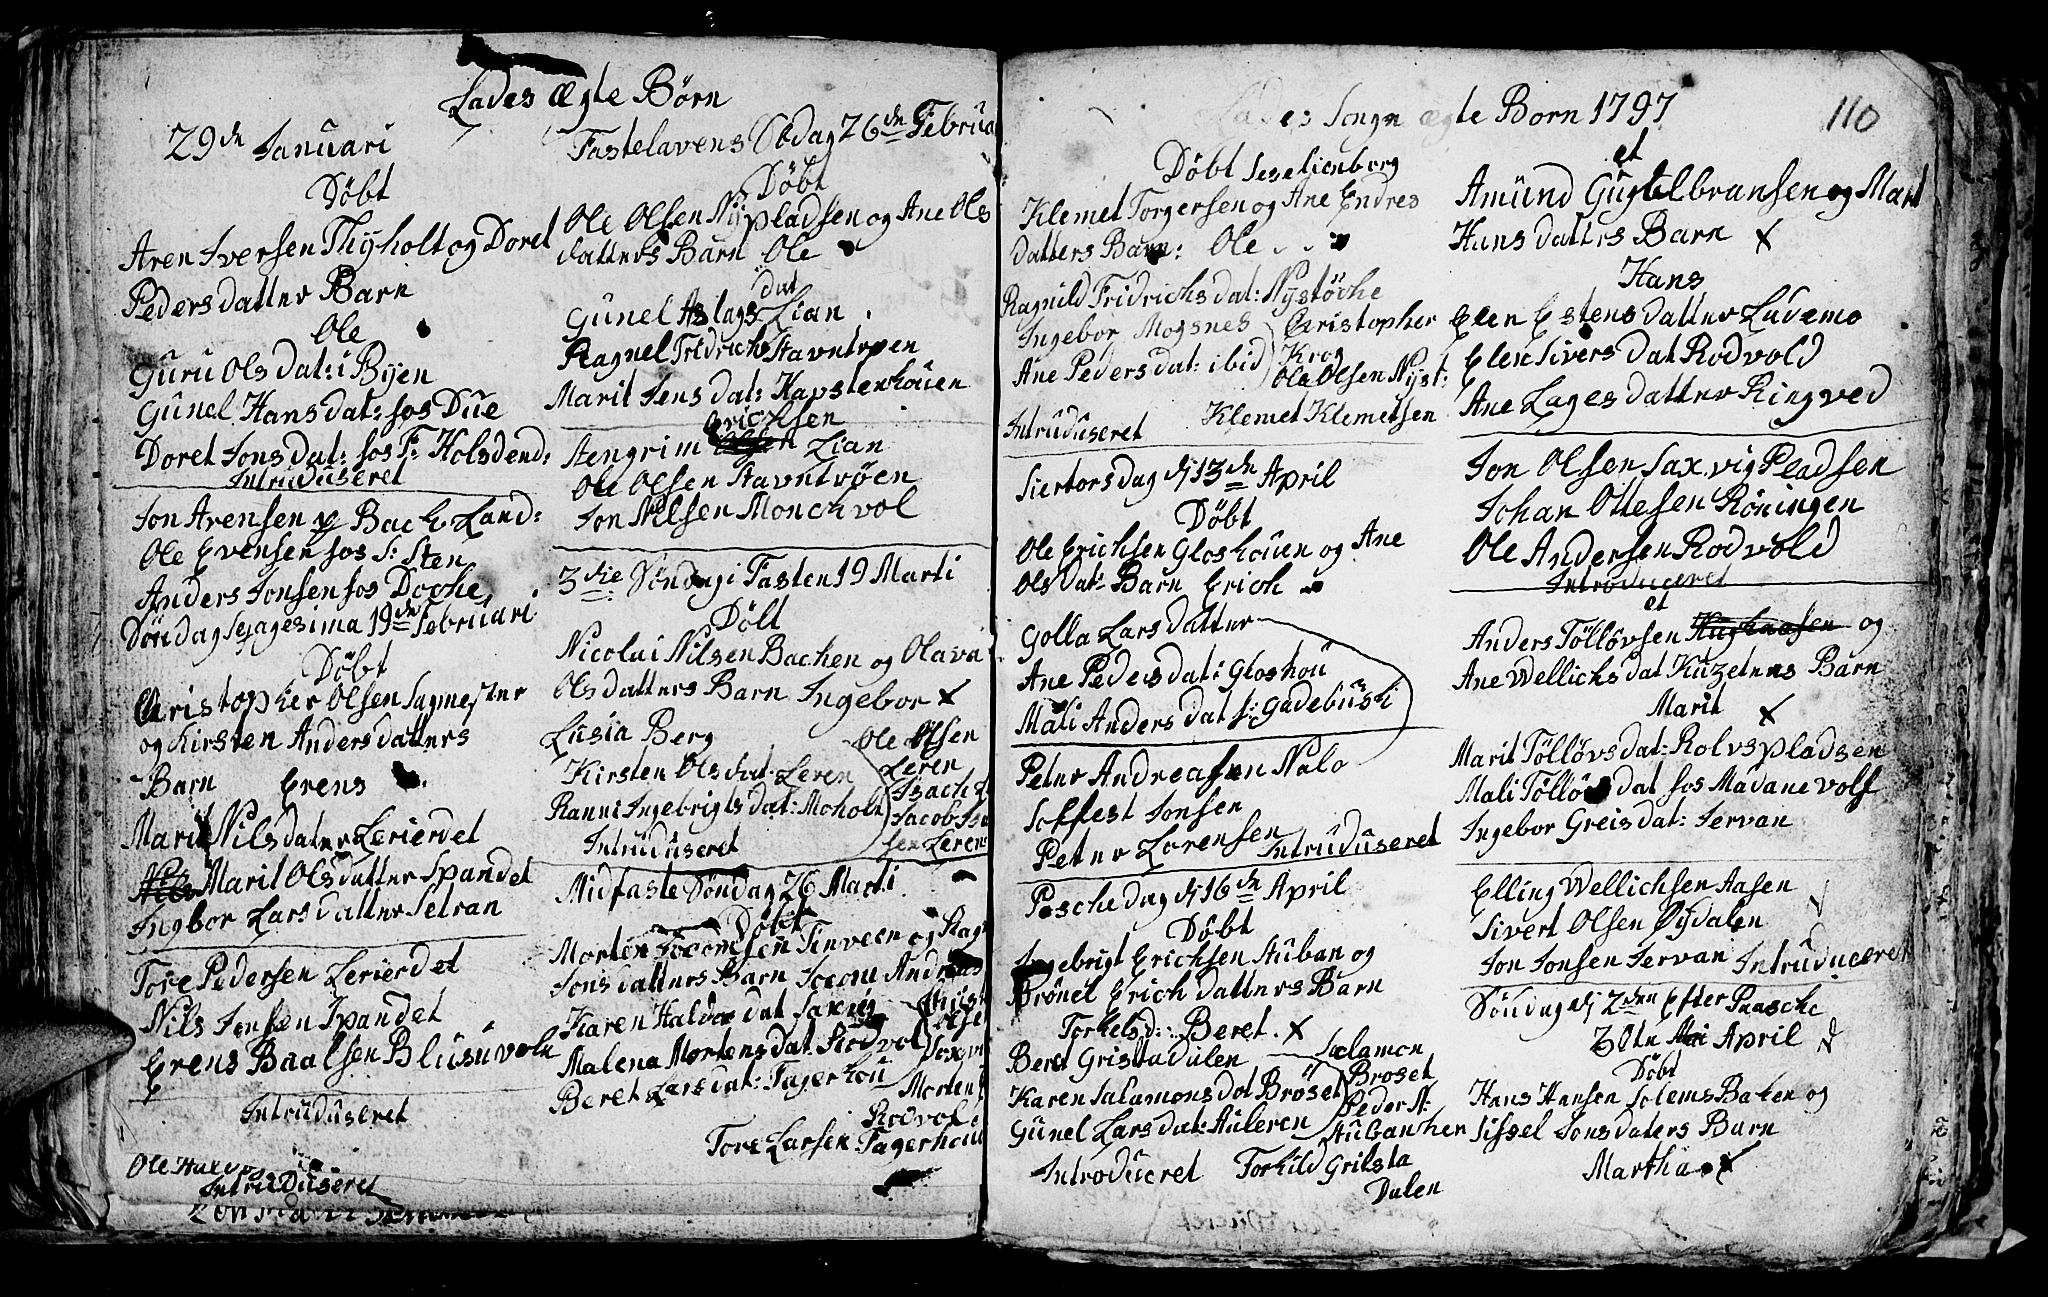 Lades Ægte Børn
29de Januari
Døbt
Aren Iversen Thyholt og Doret
Pedersdatter Barn
Ole
Guru Olsdat: i Byen
Gunel Hansdat: hos Due
Doret Jonsdat: hos F: Holsdend:
Intruduseret
Jon Arensen Bach Land:
Ole Evensen hos S: Sten
Anders Jonsen hos Doche
Søndag Sexagesima 19de Februari
Døbt
Christopher Olsen Sagmester
og Kirsten Andersdatters
Barn Erens
Marit Nilsdatter Lerierdet
Marit Olsdatter Spandet
Ingbor Larsdatter Setran
Tore Pedersen Lerierdet
Nils Jonsen Spandet
Erens Baalsen Blusuvoln
Intruduseret
Ole
Intruduseret
Fastelavens Sødag 26de Februa
Døbt
Ole Olsen Nypladsen og Ane Ols
datters Barn Ole
dat
Gunel Aslags Lian
Ragnel Fridrichs Stavntrøen
Marit Jensdat: Karstenhouen
Erichsen
Stengrim Olsen Lian
Ole Olsen Stavntrøen
Jon Nilsen Monchvol
3die Søndag i Fasten 19 Marti
Døbt
Nicolai Nilsen Bachen og Olava
Olsdatters Barn Ingebor x
Lusia Berg Ole Olsen
Kirsten Olsdat: Leren Leren
Ranni Ingebrigtsdat: Moholt Isach L
Jacob
Intruduseret sen Leren
Midfaste Søndag 26 Marti
Døbt
Morten Jocomsen Tinveen og Rag
Jonsdatters Barn Jocom Andreas
Karen Haldordat Saxvig
Malena Mortensdat: Rodvol
Beret Larsdat: Fagerhou Morten
Rodvol
Tore Larsen Fagerhou
Lades Songn ægte Born 1797
110
Døbt Jeselienborg
Klemet Torgersen og Ane Endres
datters Barn: Ole
Ragnild Fridrichsdat: Nystøche
Ingebor Mogsnes Christopher
Krog
Ane Pedersdat: ibid Ole Olsen Nyst:
Intruduseret Klemet Klemetsen
Siertorsdag d 13de April
Døbt
Ole Erichsen Gloshouen og Ane
Olsdat: Barn Erich
Golla Larsdatter
Ane Pedersdat: Gloshou
Mali Andersdat i Gadebuski
Peter Andreasen Nalo
Tolfest Jonsen
Peter Lorensen Intruduseret
Paschedag d 16de April
Døbt
Ingebrigt Erichsen Stuban og
Brønel Erichdatters Barn
Torkelsd: Beret. x
Beret Gristadalen Salamon
Karen Salamonsdat Brøset Brøset
Gunel Larsdat: Stuleren Peder A:
Stubanher
Introduceret Torkild Grilsta
Dalen
et
Amund Gugelbransen og Marit
Hansdatters Barn x
Hans
Elen Estensdatter Ludemo
Elen Siversdat Rodvold
Ane Lagesdatter Ringved
Jon Olsen Saxvig Pladsen
Johan Ottesen Røningen
Ole Andersen Rodvold
Introduceret
et
Anders Tølløvsen og
Ane Wellichsdat Kuzeters Barn
Marit x
Marit Tølløvsdat: Rolvspladsen
Mali Tølløvsdat hos Madane Volf
Ingebor Greisdat: Jervan
Elling Wellichsen Aasen
Sivert Olsen Øydalen
Jon Jonsen Jervan Intruduceret
Søndag d 2den Efter Paasche
30te April
Døbt
Hans Hansen Solems Baken og
Sissel Jonsdaters Barn
Martha x